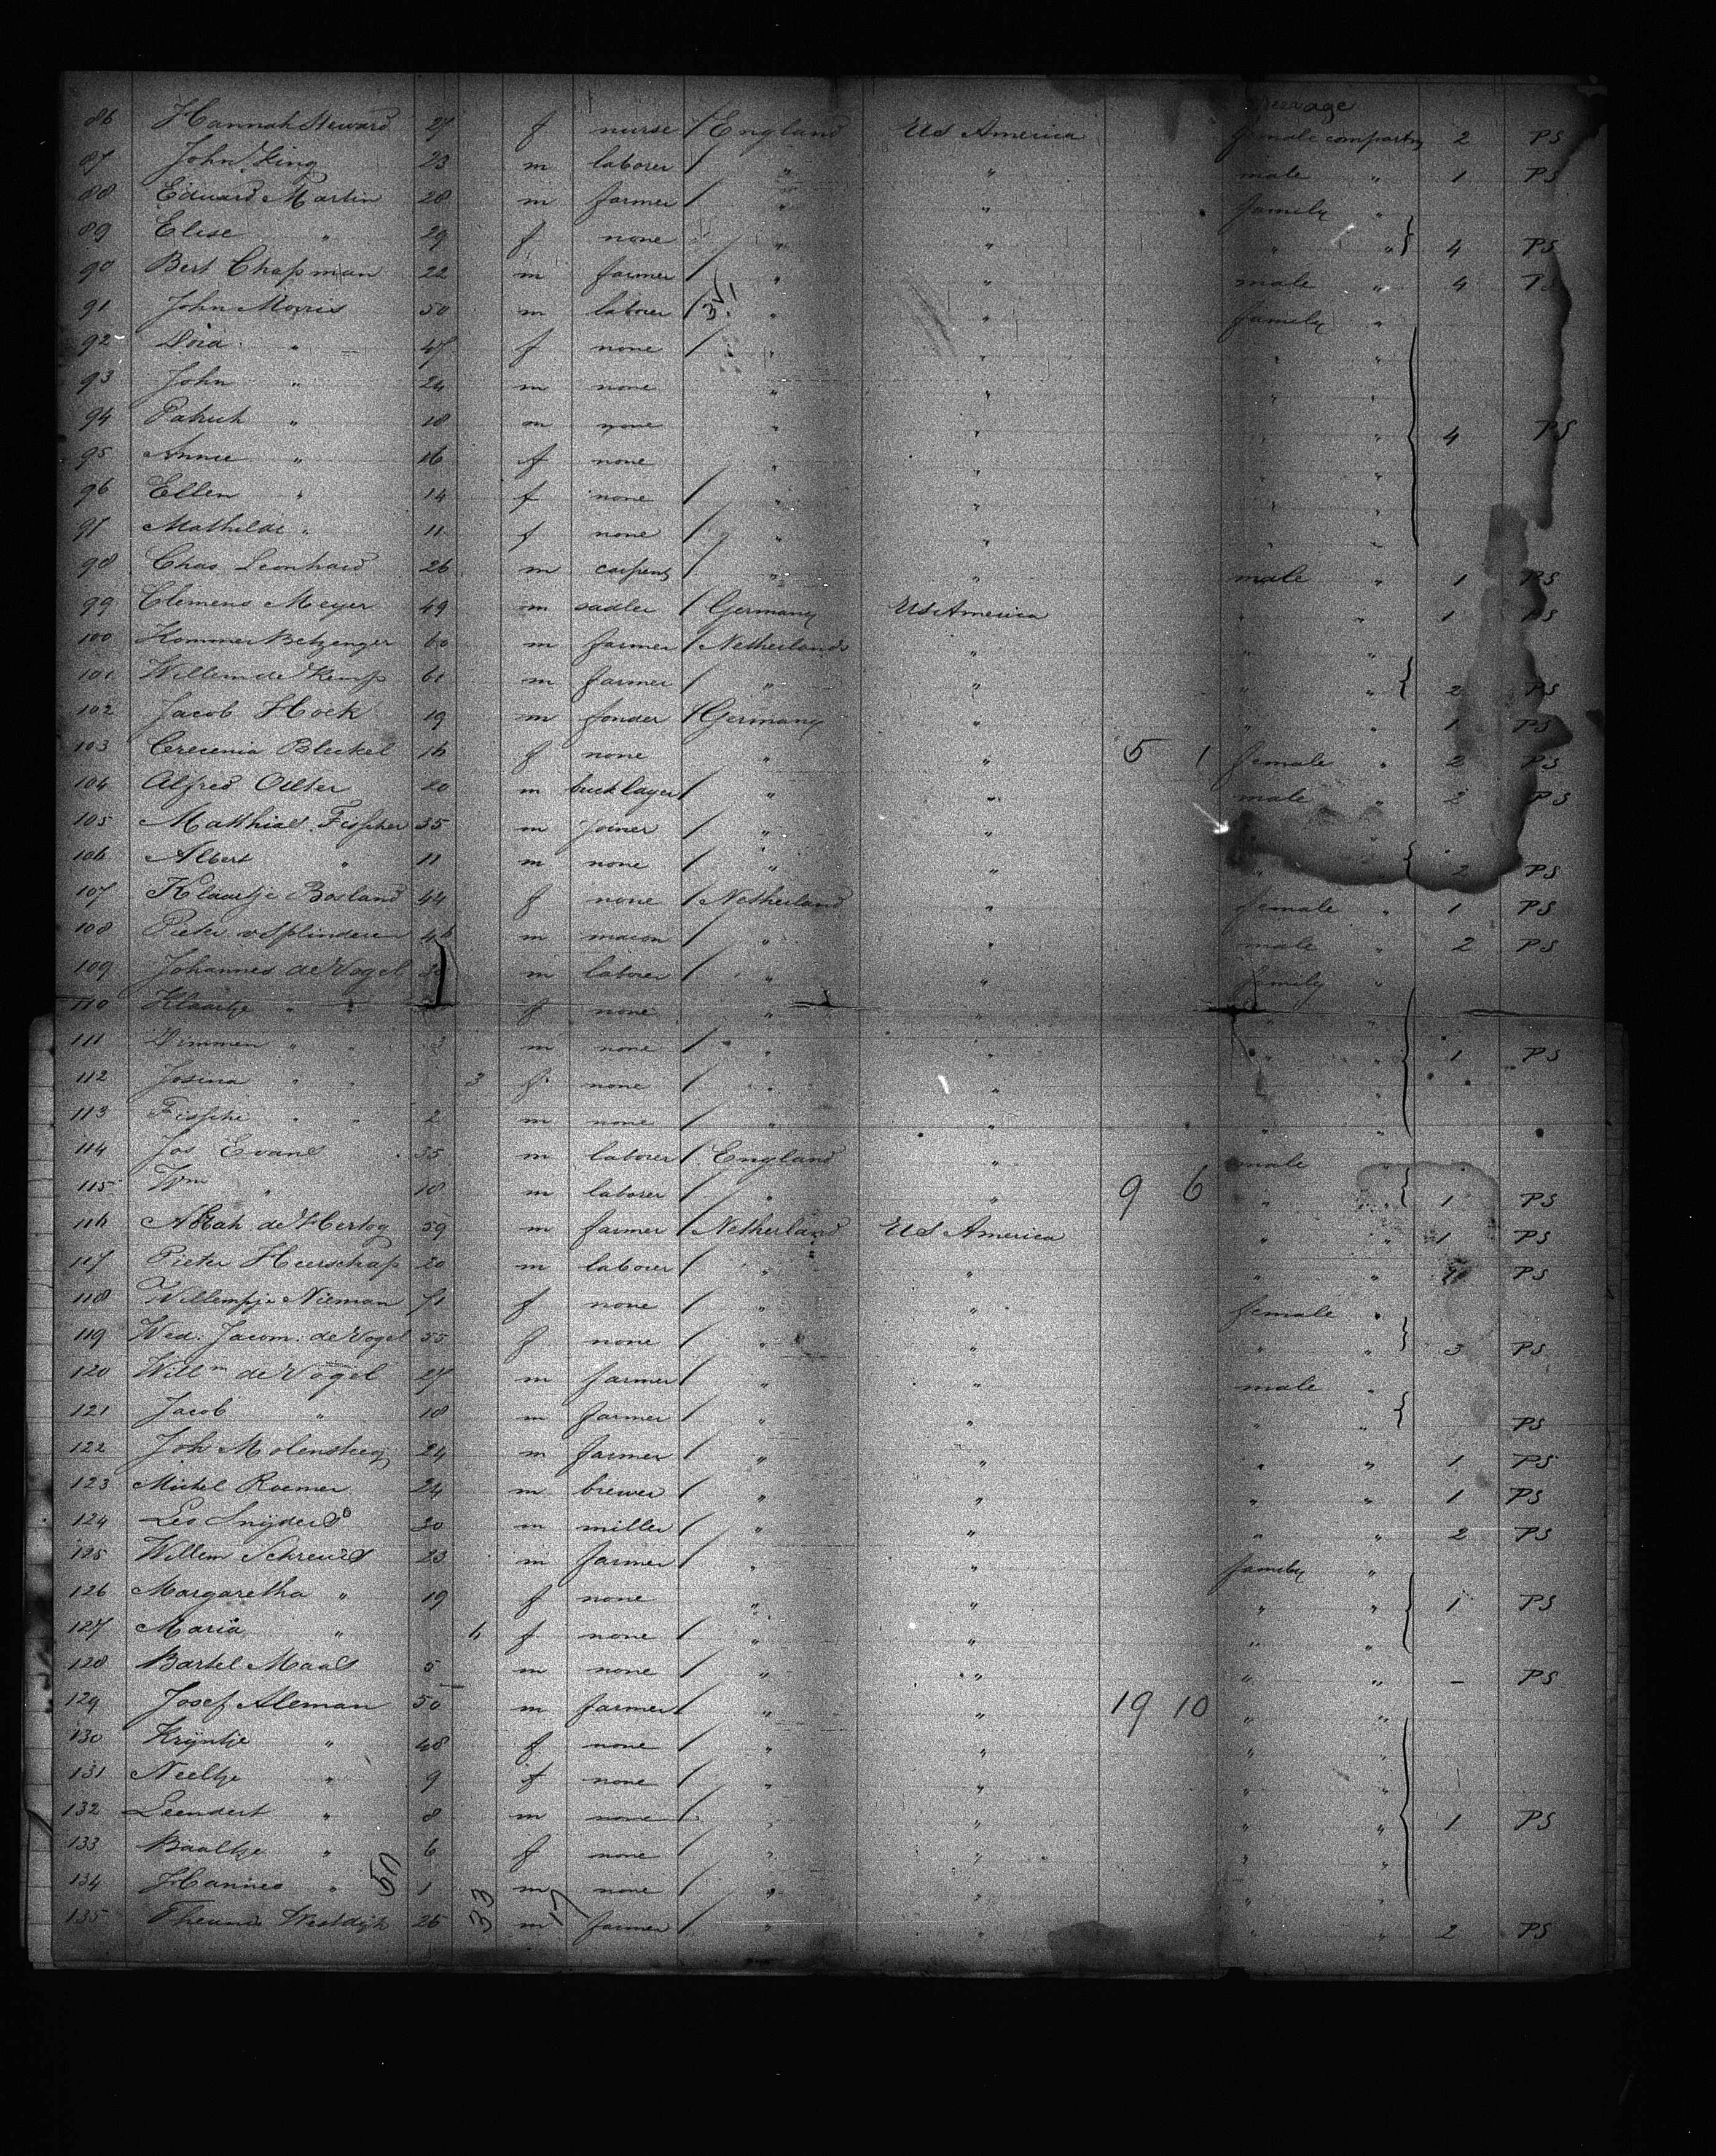 Steerage
86 Hannah Steward 27 f nurse / England US America female compartm 2 PS
87 John King 23 m laborer / " " male " 1 PS
88 Eduard Martin 28 m farmer / " " family "
89 Elise " 29 f none / " " " " } 4 PS
90 Bert Chapman 22 m farmer / " " male " 4 PS
91 John Morris 50 m laborer / " " family "
92 Dora " 47 f none / " " " "
93 John " 24 m none " " " "
94 Patrick " 18 m none " " " " } 4 PS
95 Annie " 16 f none " " " "
96 Ellen " 14 f none / " " " "
97 Mathilde " 11 f none / " " " "
98 Chas Leonhard 26 m carpent / " " male " 1 PS
99 Clemens Meyer 49 m sadler / Germany US America " " 1 PS
100 Kommer Betzenger 60 m farmer / Netherlands " " "
101 Willem de Kemp 61 m farmer / " " " " } 2 PS
102 Jacob Hock 19 m fonder / Germany " " " 1 PS
103 Crecenia Bleckel 16 f none " " 5 1 female " 2 PS
104 Alfred Olter 20 m bricklayer / " " male " 2 PS
105 Matthias Fisscher 35 m joiner / " " " "
106 Albert " 11 m none / " " " " } 2 PS
107 Klaartje Bosland 44 f none / Netherland " female " 1 PS
108 Pieter v Splinderen 46 m mason / " " male " 2 PS
109 Johannes de Vogel m laborer / " " family "
110 Klaartje " f none " " " "
111 Dimmen " 3 m none / " " " " } 1 PS
112 Josina " 3 f none / " " "
113 Fissche " 2 m none / " " " "
114 Jos Evans 35 m laborer / England " male "
115 Wm " 18 m laborer / " " 9 6 " } 1 PS
116 Abrah de Hertog 59 m farmer / Netherland US America " " 1 PS
117 Pieter Heerschap 20 m laborer / " " " " PS
118 Willempje Nieman 71 f none / " " female "
119 Wed. Jacom. de Vogel 55 f none / " " " " } 3 PS
120 Willm de Vogel 27 m farmer / " " male "
121 Jacob " 18 m farmer / " " " " } PS
122 Joh Molensteeg 24 m farmer / " " " " 1 PS
123 Michel Roemer 24 m brewer / " " " " 1 PS
124 Leo Snyders 30 m miller / " " " " 2 PS
125 Willem Schreuds 23 m farmer / " " family "
126 Margaretha " 19 f none " " " " } 1 PS
127 Maria " 6 f none / " " " "
128 Bartel Maas 5 m none / " " " " — PS
129 Josef Aleman 50 m farmer / " " 19 10 " "
130 Kryntje " 48 f none / " " " "
131 Neeltje " 9 f none / " " " "
132 Leendert " 8 m none / " " " " } 1 PS
133 Baaltje " 6 f none / " " " "
134 Johannes " 1 m none / " " " "
135 Theunis Westdyk 26 m farmer / " " " " 2 PS
50 33 17